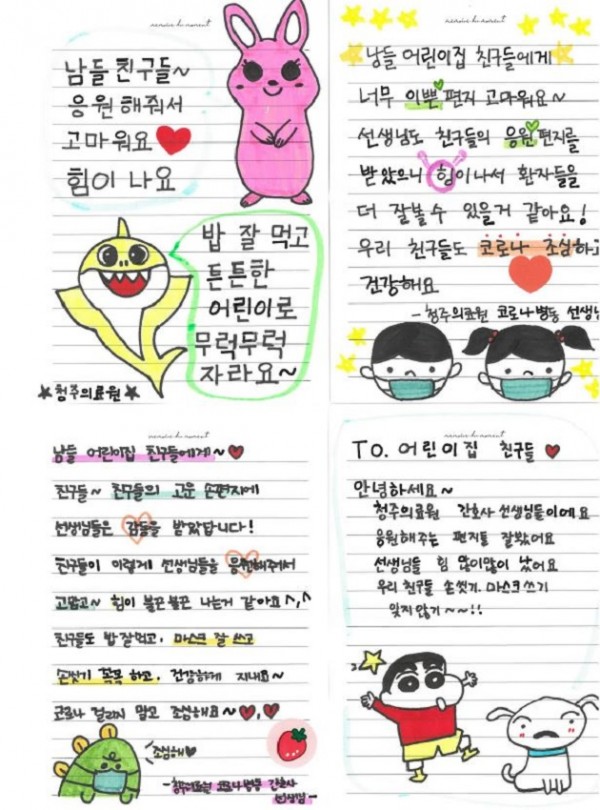 남들 친구들~
응원해줘서
고마워요
힘이 나요
밥 잘 먹고
튼튼한
어린이로
무럭무럭
자라요~
청주의료원
남들 어린이집 친구들에게
너무 이쁜 편지 고마워요~
선생님도 친구들의 응원 편지를
받았으니 힘이나서 환자들을
더 잘볼 수 있을거 같아요!
우리 친구들도 코로나 조심하고
건강해요
-청주의료원 코로나병동 선생님
남들 어린이집 친구들에게~
친구들~ 친구들의 고운 손편지에
선생님들은 감동을 받았답니다!
친구들이 이렇게 선생님들을 응원해주어서
고맙고~ 힘이 불끈불끈 나는거 같아요^,^
친구들도 밥 잘먹고, 마스크 잘 쓰고
손씻기 꼭꼭 하고, 건강하게 지내요~
코로나 걸리지 말고 조심해요~
조심해
-청주의료원 코로나병동 간호사
선생님-
To. 어린이집 친구들
안녕하세요~
청주의료원 간호사 선생님들이에요
응원해주는 편지들 잘봤어요
선생님들 힘 많이많이 났어요
우리 친구들 손씻기, 마스크쓰기
잊지않기~~!!